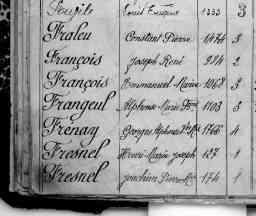 Louis 1333 3
Fraleu Constant Pierre 1464 3
François Joseph René 214 2
François Emmanuel Marie 1068 3
Frangeul Alphonse Marie 1103 3
Frenay Georges Alphonse 1766 4
Fresnel Henri Marie Joseph 127 1
Fresnel Joachim Pierre 174 1